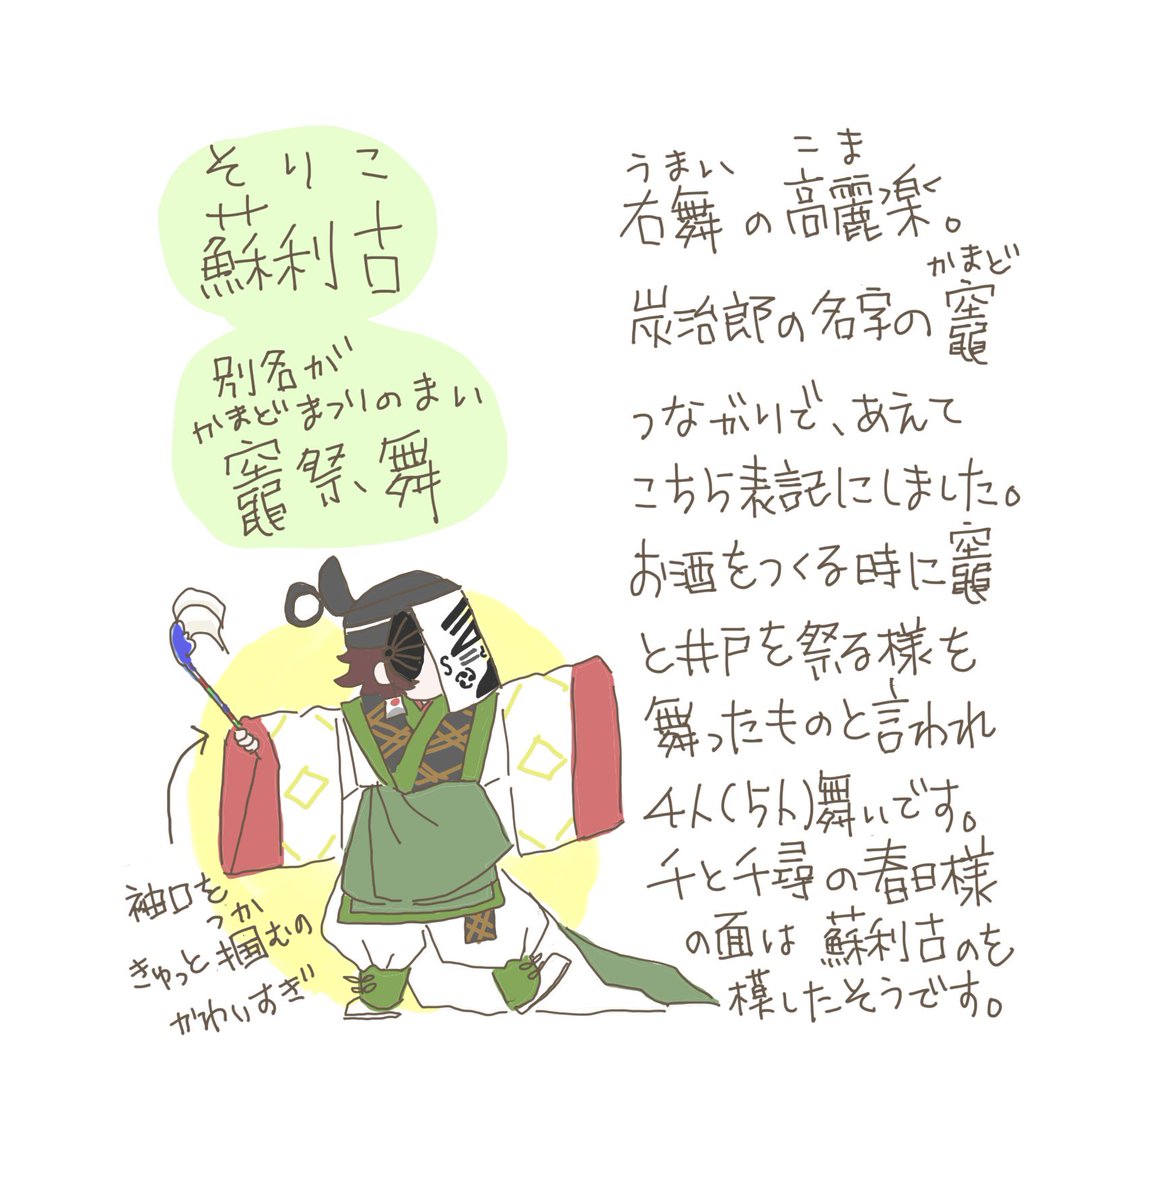 そりこ
蘇利古
別名が
かまどまつりのまい
竈祭舞
うまい こま
右舞の高麗楽。
かまど
炭治郎の名字の竈
つながりで、あえて
こちら表記にしました。
お酒をつくる時に竈
と井戸を祭る様を
舞ったものと言われ
4人(5人)舞いです。
千と千尋の春日様
の面は蘇利古のを
模したそうです。
袖口を
つか
きゅっと掴むの
かわいすぎ